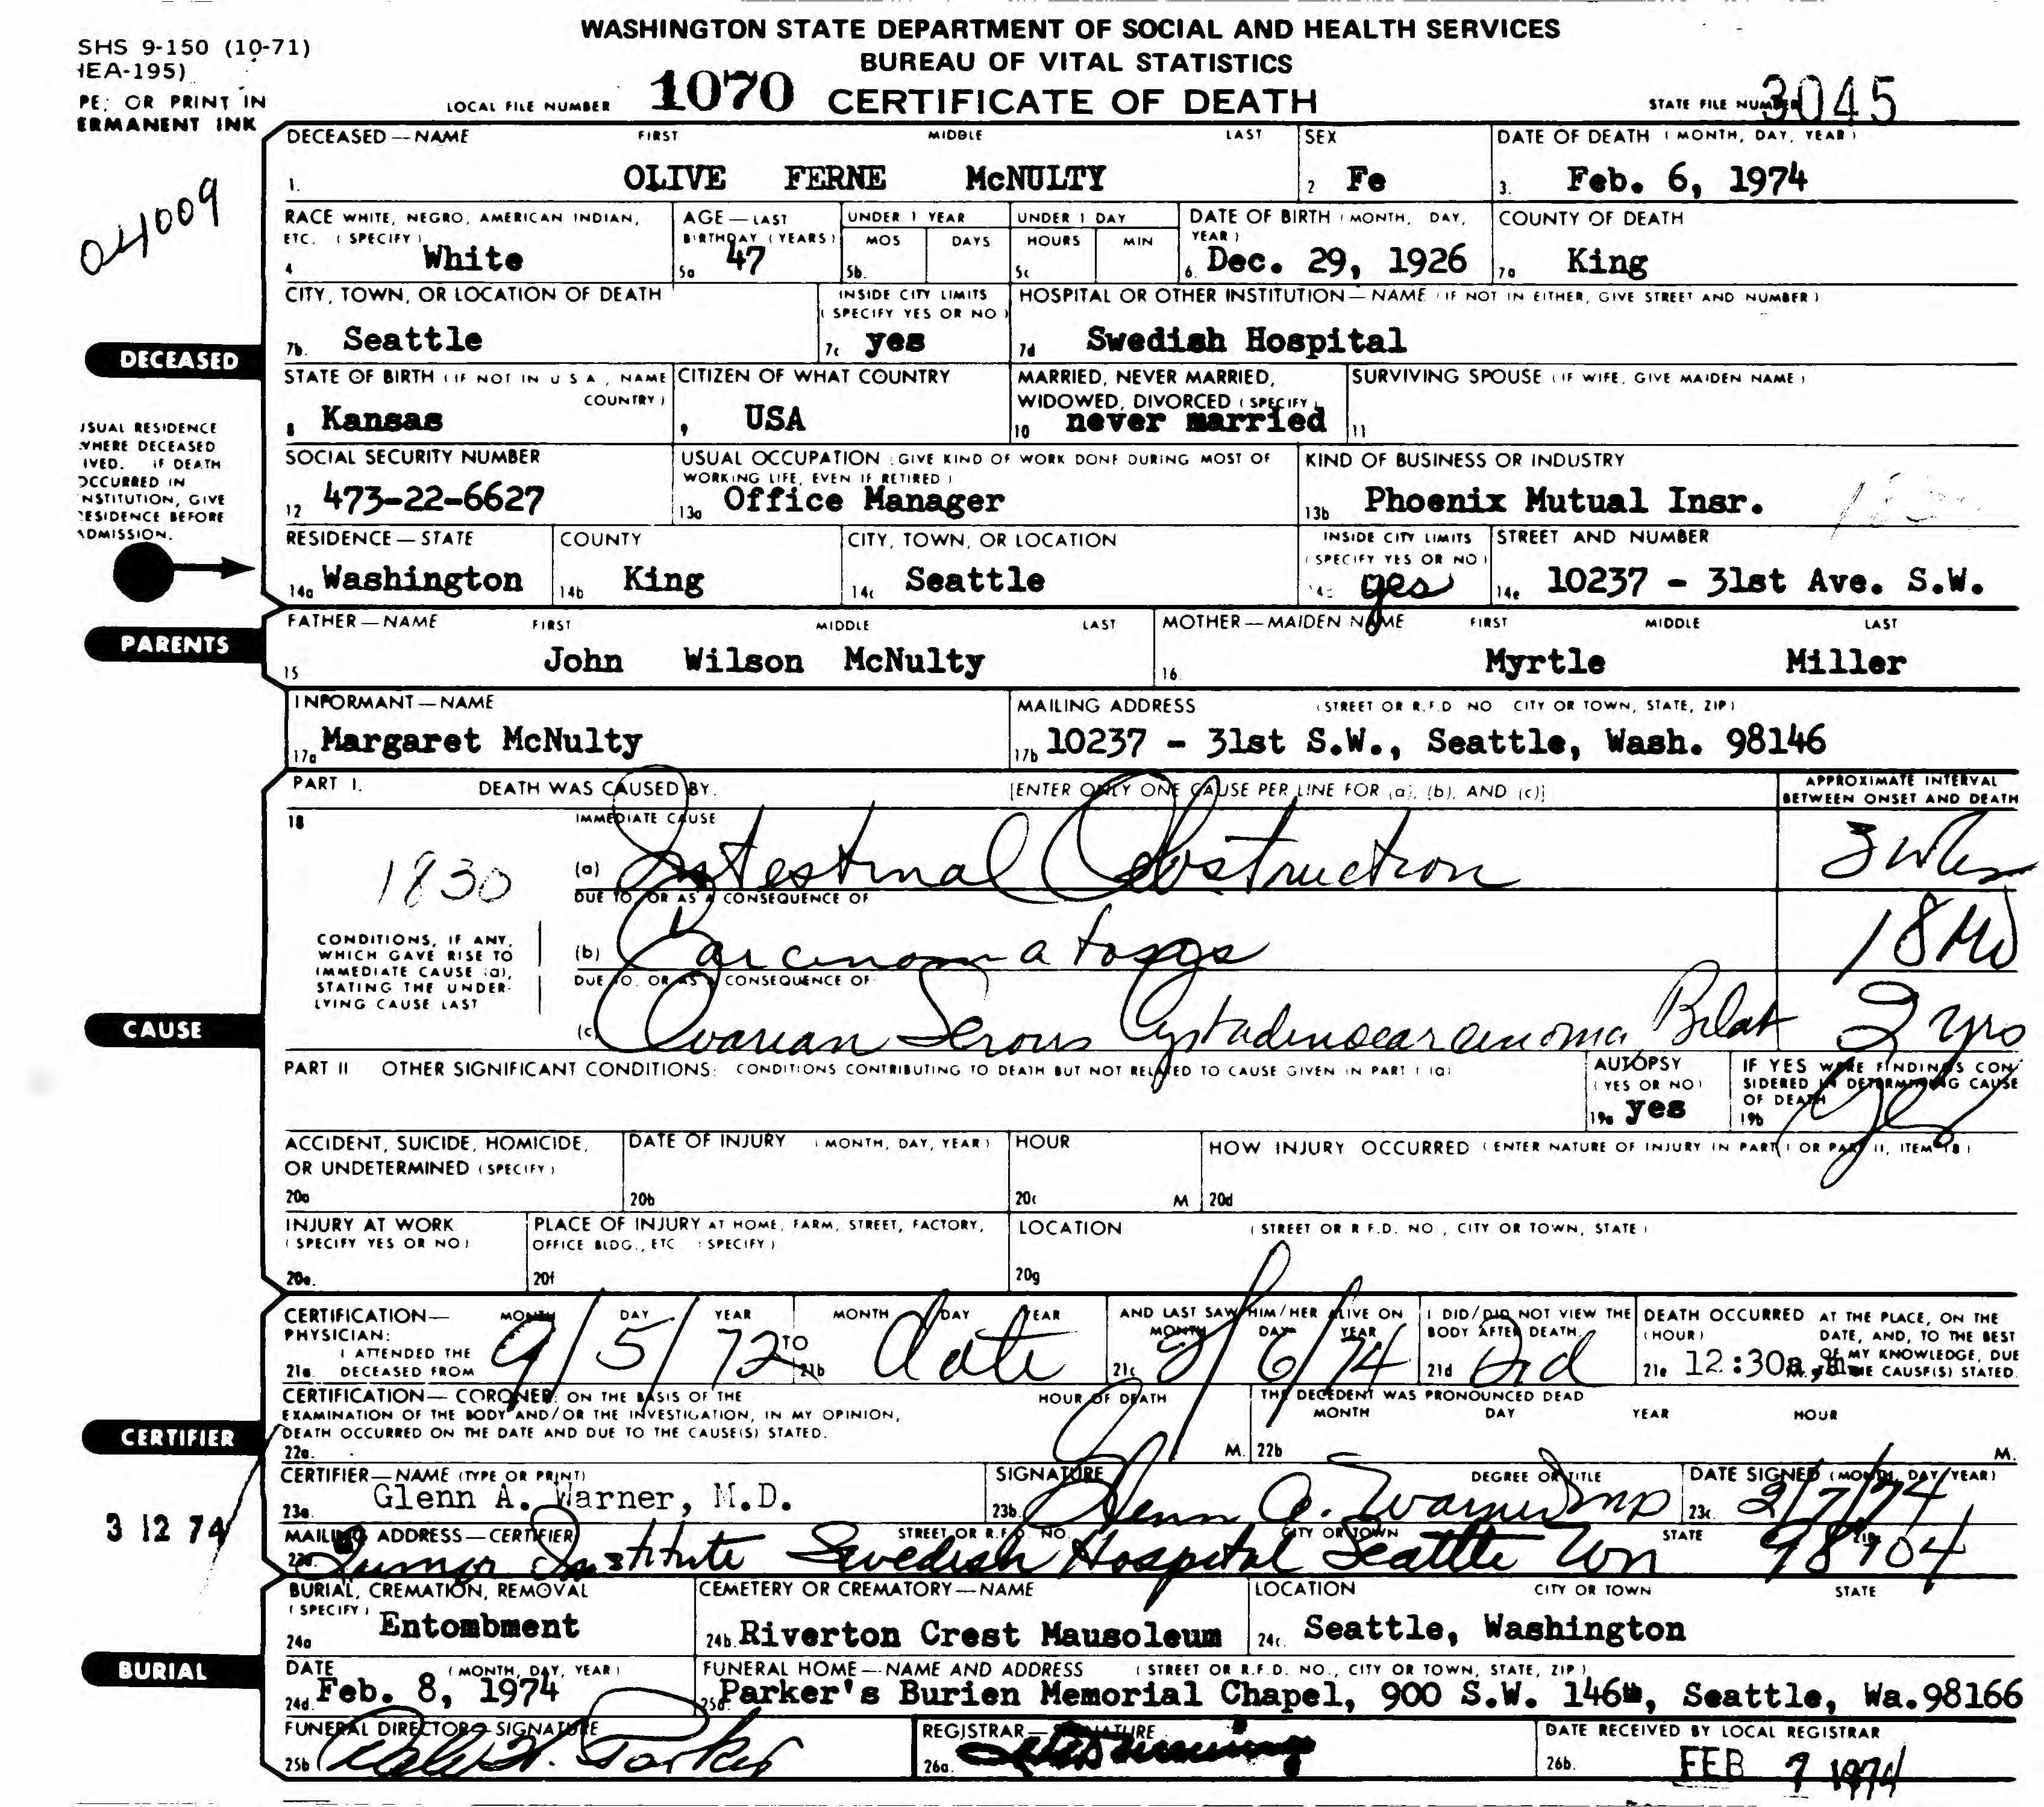 WASHINGTON STATE DEPARTMENT OF SOCIAL AND HEALTH SERVICES
SHS 9-150 (10-71)
BUREAU OF VITAL STATISTICS
HEA-195)
PE, OR PRINT IN
ERMANENT INK
LOCAL FILE NUMBER 1070 CERTIFICATE OF DEATH STATE FILE NUMBER 3045
04009
DECEASED—NAME FIRST MIDDLE LAST SEX DATE OF DEATH (MONTH, DAY, YEAR)
1. OLIVE FERNE McNULTY 2 Fe 3. Feb. 6, 1974
RACE WHITE, NEGRO, AMERICAN INDIAN, ETC. (SPECIFY) AGE—LAST BIRTHDAY (YEARS) UNDER 1 YEAR MOS DAYS UNDER 1 DAY HOURS MIN DATE OF BIRTH (MONTH, DAY, YEAR) COUNTY OF DEATH
4 White 5a 47 5b. 5c 6. Dec. 29, 1926 7a King
CITY, TOWN, OR LOCATION OF DEATH INSIDE CITY LIMITS (SPECIFY YES OR NO) HOSPITAL OR OTHER INSTITUTION—NAME (IF NOT IN EITHER, GIVE STREET AND NUMBER)
7b. Seattle 7c yes 7d Swedish Hospital
DECEASED
STATE OF BIRTH (IF NOT IN U S A, NAME COUNTRY) CITIZEN OF WHAT COUNTRY MARRIED, NEVER MARRIED, WIDOWED, DIVORCED (SPECIFY) SURVIVING SPOUSE (IF WIFE, GIVE MAIDEN NAME)
8 Kansas 9 USA 10 never married 11
USUAL RESIDENCE
WHERE DECEASED
IVED. IF DEATH
OCCURRED IN
NSTITUTION, GIVE
RESIDENCE BEFORE
ADMISSION.
SOCIAL SECURITY NUMBER USUAL OCCUPATION (GIVE KIND OF WORK DONE DURING MOST OF WORKING LIFE, EVEN IF RETIRED) KIND OF BUSINESS OR INDUSTRY
12 473-22-6627 13a Office Manager 13b Phoenix Mutual Insr.
RESIDENCE—STATE COUNTY CITY, TOWN, OR LOCATION INSIDE CITY LIMITS (SPECIFY YES OR NO) STREET AND NUMBER
14a Washington 14b King 14c Seattle yes 14e 10237 - 31st Ave. S.W.
PARENTS
FATHER—NAME FIRST MIDDLE LAST MOTHER—MAIDEN NAME FIRST MIDDLE LAST
15 John Wilson McNulty 16 Myrtle Miller
INFORMANT—NAME MAILING ADDRESS (STREET OR R.F.D NO CITY OR TOWN, STATE, ZIP)
17a Margaret McNulty 17b 10237 - 31st S.W., Seattle, Wash. 98146
PART I. DEATH WAS CAUSED BY: [ENTER ONLY ONE CAUSE PER LINE FOR (a), (b), AND (c)] APPROXIMATE INTERVAL BETWEEN ONSET AND DEATH
18 IMMEDIATE CAUSE
1830 (a) Intestinal Obstruction 3 wks
DUE TO, OR AS A CONSEQUENCE OF
CONDITIONS, IF ANY,
WHICH GAVE RISE TO
IMMEDIATE CAUSE (a),
STATING THE UNDER-
LYING CAUSE LAST
(b) Carcinomatosis 18 Mo
DUE TO, OR AS A CONSEQUENCE OF
CAUSE
(c) Ovarian Serous Cystadenocarcinoma Bilat 2 yrs
PART II OTHER SIGNIFICANT CONDITIONS: CONDITIONS CONTRIBUTING TO DEATH BUT NOT RELATED TO CAUSE GIVEN IN PART I (a) AUTOPSY (YES OR NO) IF YES WERE FINDINGS CONSIDERED IN DETERMINING CAUSE OF DEATH
19a yes 19b yes
ACCIDENT, SUICIDE, HOMICIDE, OR UNDETERMINED (SPECIFY) DATE OF INJURY (MONTH, DAY, YEAR) HOUR HOW INJURY OCCURRED (ENTER NATURE OF INJURY IN PART I OR PART II, ITEM 18)
20a 20b 20c M 20d
INJURY AT WORK (SPECIFY YES OR NO) PLACE OF INJURY AT HOME, FARM, STREET, FACTORY, OFFICE BLDG., ETC (SPECIFY) LOCATION (STREET OR R F.D. NO., CITY OR TOWN, STATE)
20e. 20f 20g
CERTIFICATION—PHYSICIAN: I ATTENDED THE DECEASED FROM MONTH DAY YEAR TO MONTH DAY YEAR AND LAST SAW HIM/HER ALIVE ON MONTH DAY YEAR I DID/DID NOT VIEW THE BODY AFTER DEATH. DEATH OCCURRED (HOUR) AT THE PLACE, ON THE DATE, AND, TO THE BEST OF MY KNOWLEDGE, DUE TO THE CAUSE(S) STATED.
21a 9/5/72 21b date 21c 2/6/74 21d Did 21e 12:30a.m.
CERTIFICATION—CORONER: ON THE BASIS OF THE EXAMINATION OF THE BODY AND/OR THE INVESTIGATION, IN MY OPINION, DEATH OCCURRED ON THE DATE AND DUE TO THE CAUSE(S) STATED. HOUR OF DEATH THE DECEDENT WAS PRONOUNCED DEAD MONTH DAY YEAR HOUR
22a. M. 22b M.
CERTIFIER
CERTIFIER—NAME (TYPE OR PRINT) SIGNATURE DEGREE OR TITLE DATE SIGNED (MONTH, DAY, YEAR)
23a. Glenn A. Warner, M.D. 23b. Glenn A. Warner MD 23c. 2/7/74
3 12 74
MAILING ADDRESS—CERTIFIER STREET OR R.F.D. NO. CITY OR TOWN STATE ZIP
23d. Tumor Institute Swedish Hospital Seattle Wn 98104
BURIAL, CREMATION, REMOVAL (SPECIFY) CEMETERY OR CREMATORY—NAME LOCATION CITY OR TOWN STATE
24a Entombment 24b. Riverton Crest Mausoleum 24c. Seattle, Washington
BURIAL
DATE (MONTH, DAY, YEAR) FUNERAL HOME—NAME AND ADDRESS (STREET OR R.F.D. NO., CITY OR TOWN, STATE, ZIP)
24d Feb. 8, 1974 25a. Parker's Burien Memorial Chapel, 900 S.W. 146th, Seattle, Wa.98166
FUNERAL DIRECTOR—SIGNATURE REGISTRAR—SIGNATURE DATE RECEIVED BY LOCAL REGISTRAR
25b Parker 26a. 26b. FEB 7 1974